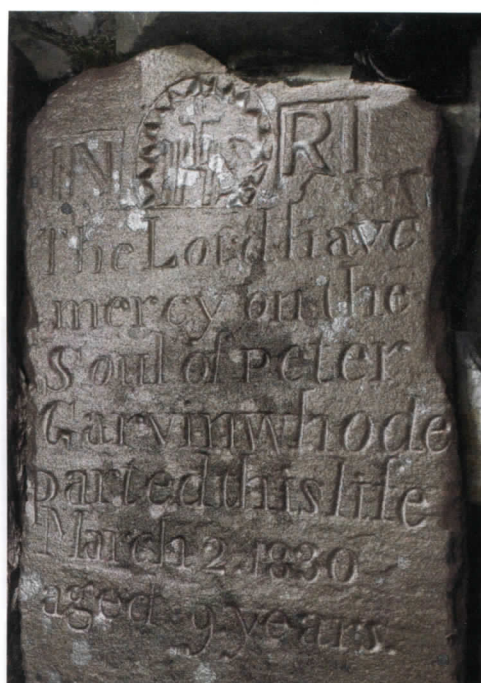 IN IHS RI
The Lord have
mercy on the
Soul of Peter
Garvin who de
parted this life
March 2 1830
aged 9 years.